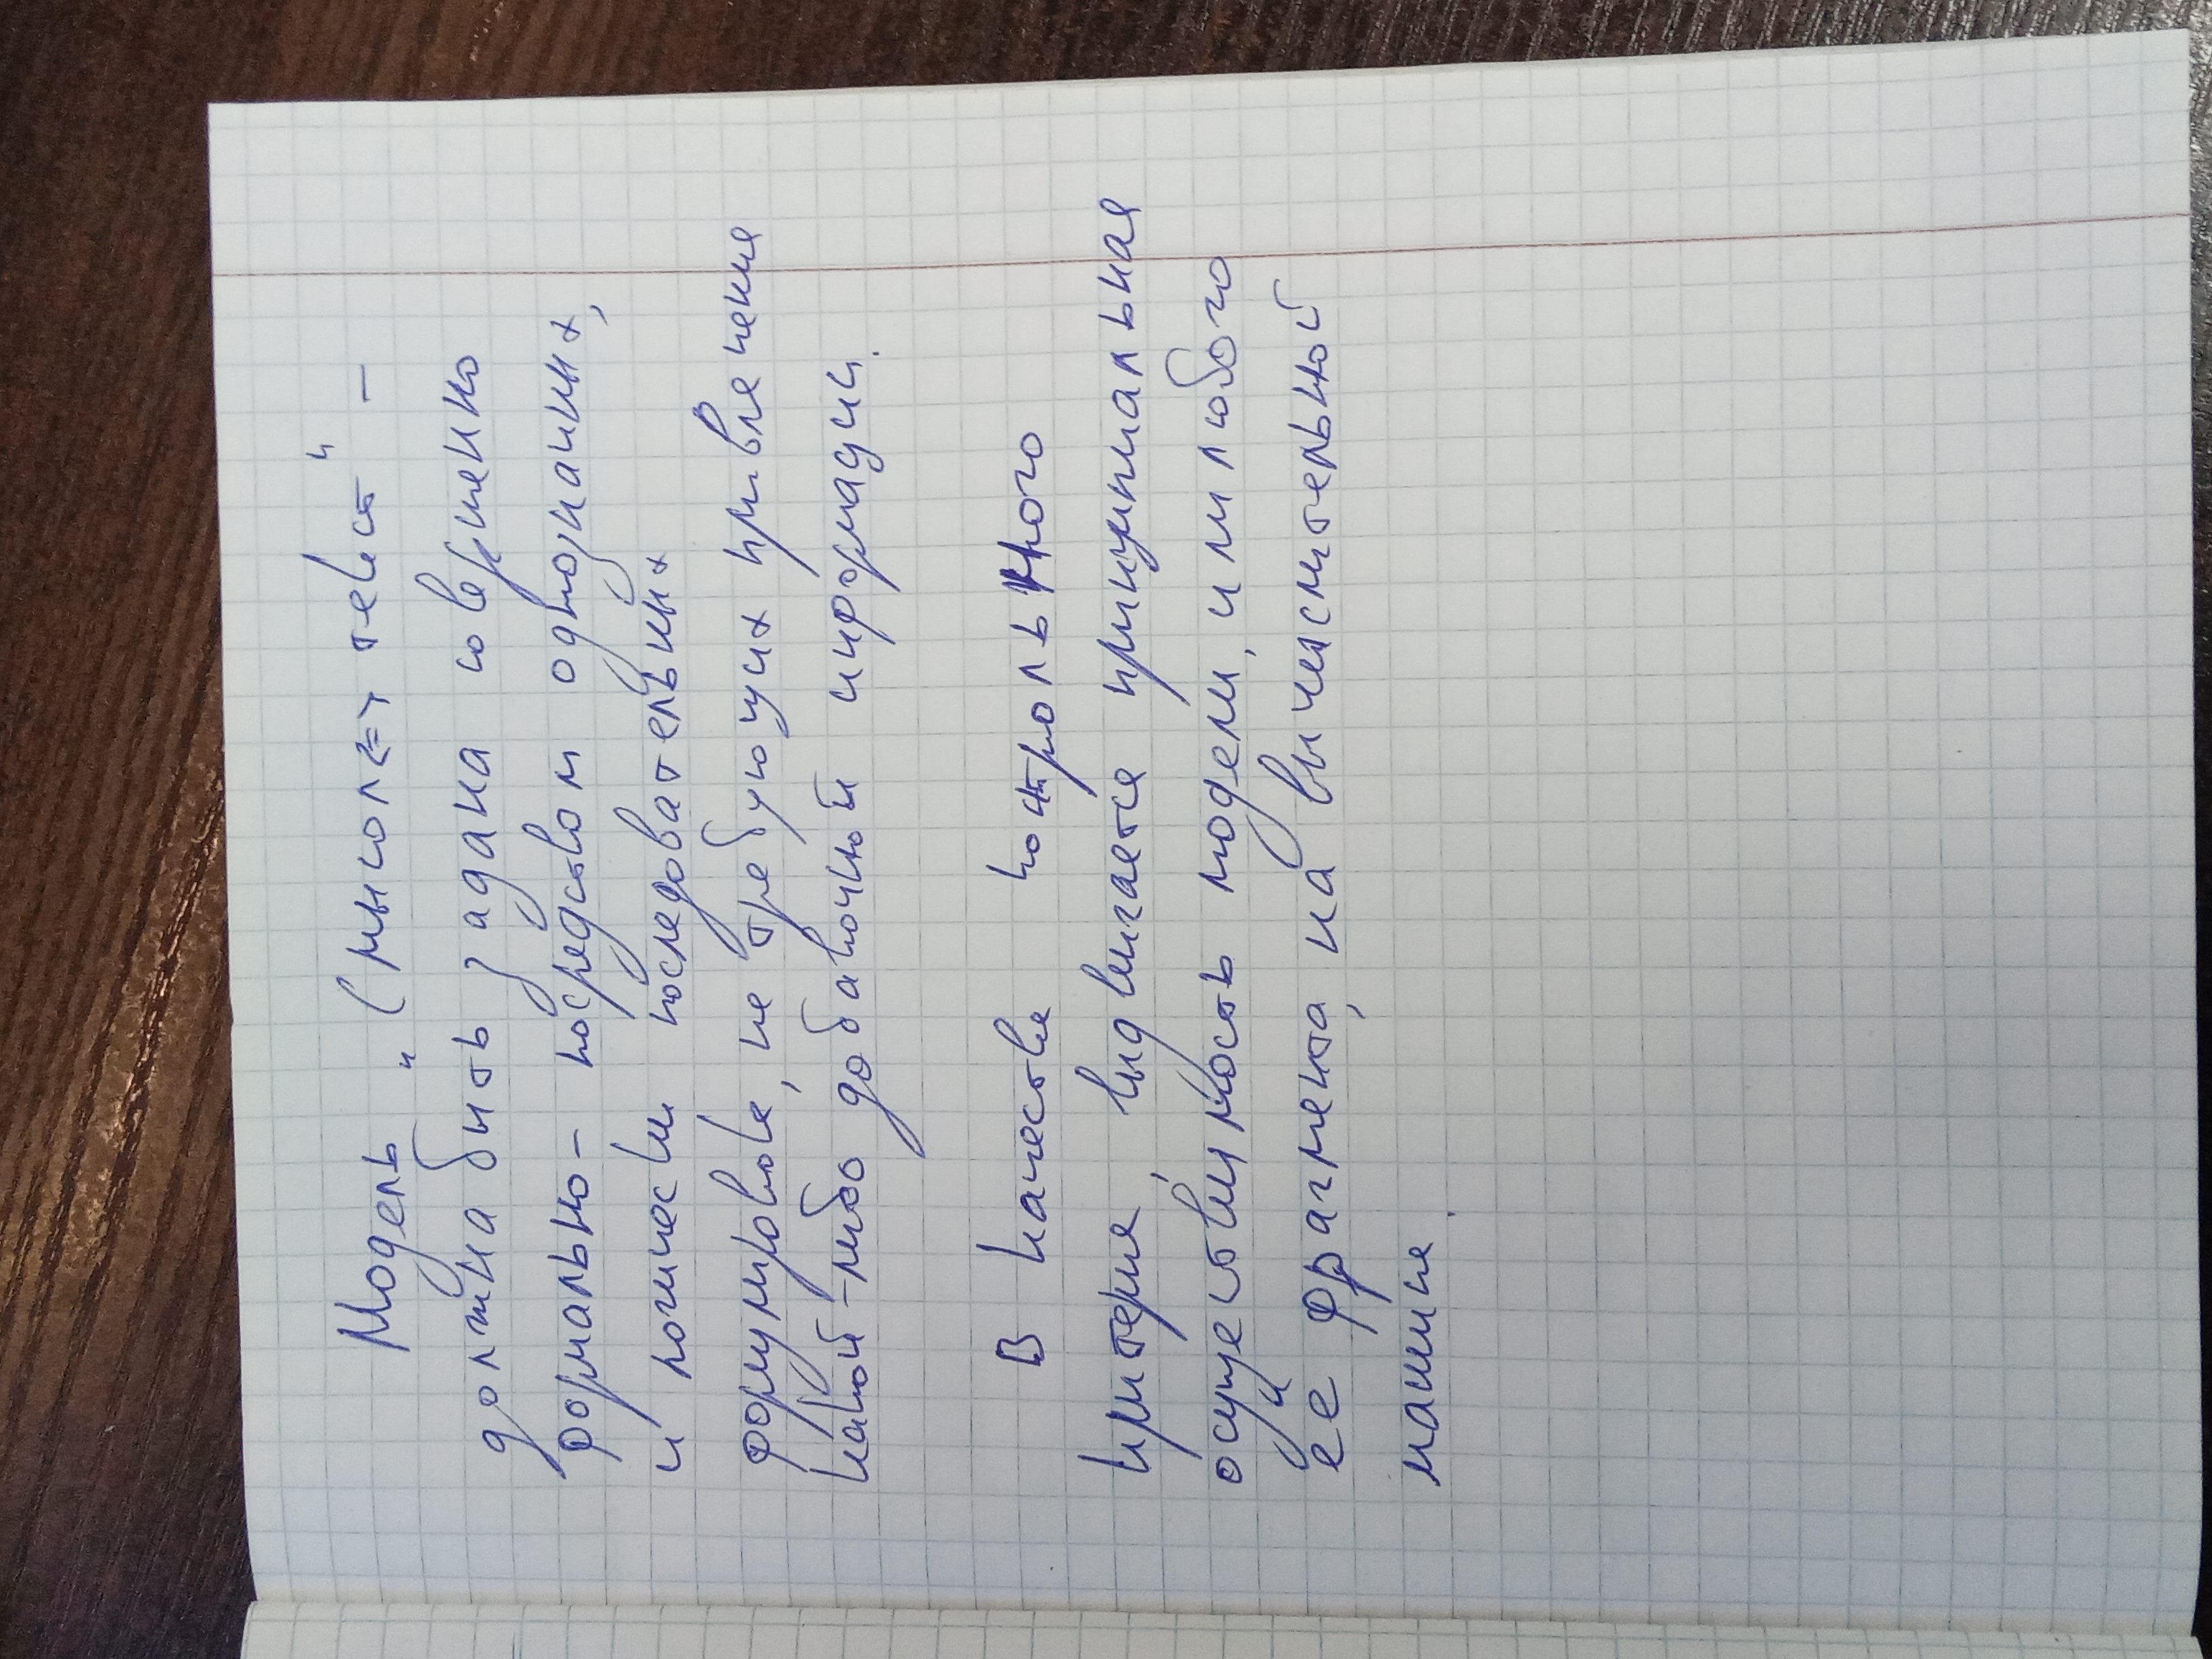 Модель „Смысл<=> текст" –
должна быть задана совершенно
формально – посредством однозначных,
и логически последовательных
формулировок, не требующих привлечения
какой-либо добавочной информации.
В качестве контрольного
критерия, выдвигается принципиальная
осуществимость модели, или любого
её фрагмента, на вычислительной
машине.